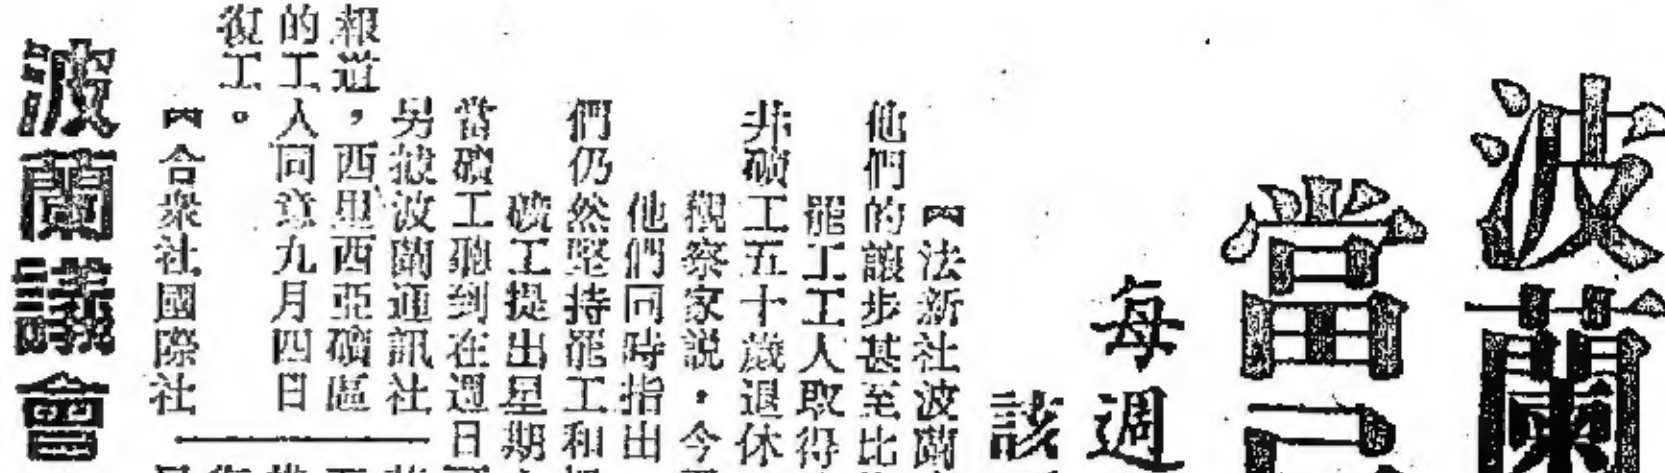 波蘭
當
每週
該
【法新社波蘭
他們的讓步甚至比
罷工工人取得
非礦工五十歲退休
觀察家説，今
他們同時指出
們仍然堅持罷工和
礦工提出星期
當礦工聽到在週日
另據波蘭通訊社
報道，西里西亞礦區
的工人同意九月四日
復工。
【合衆社國際社
波蘭議會